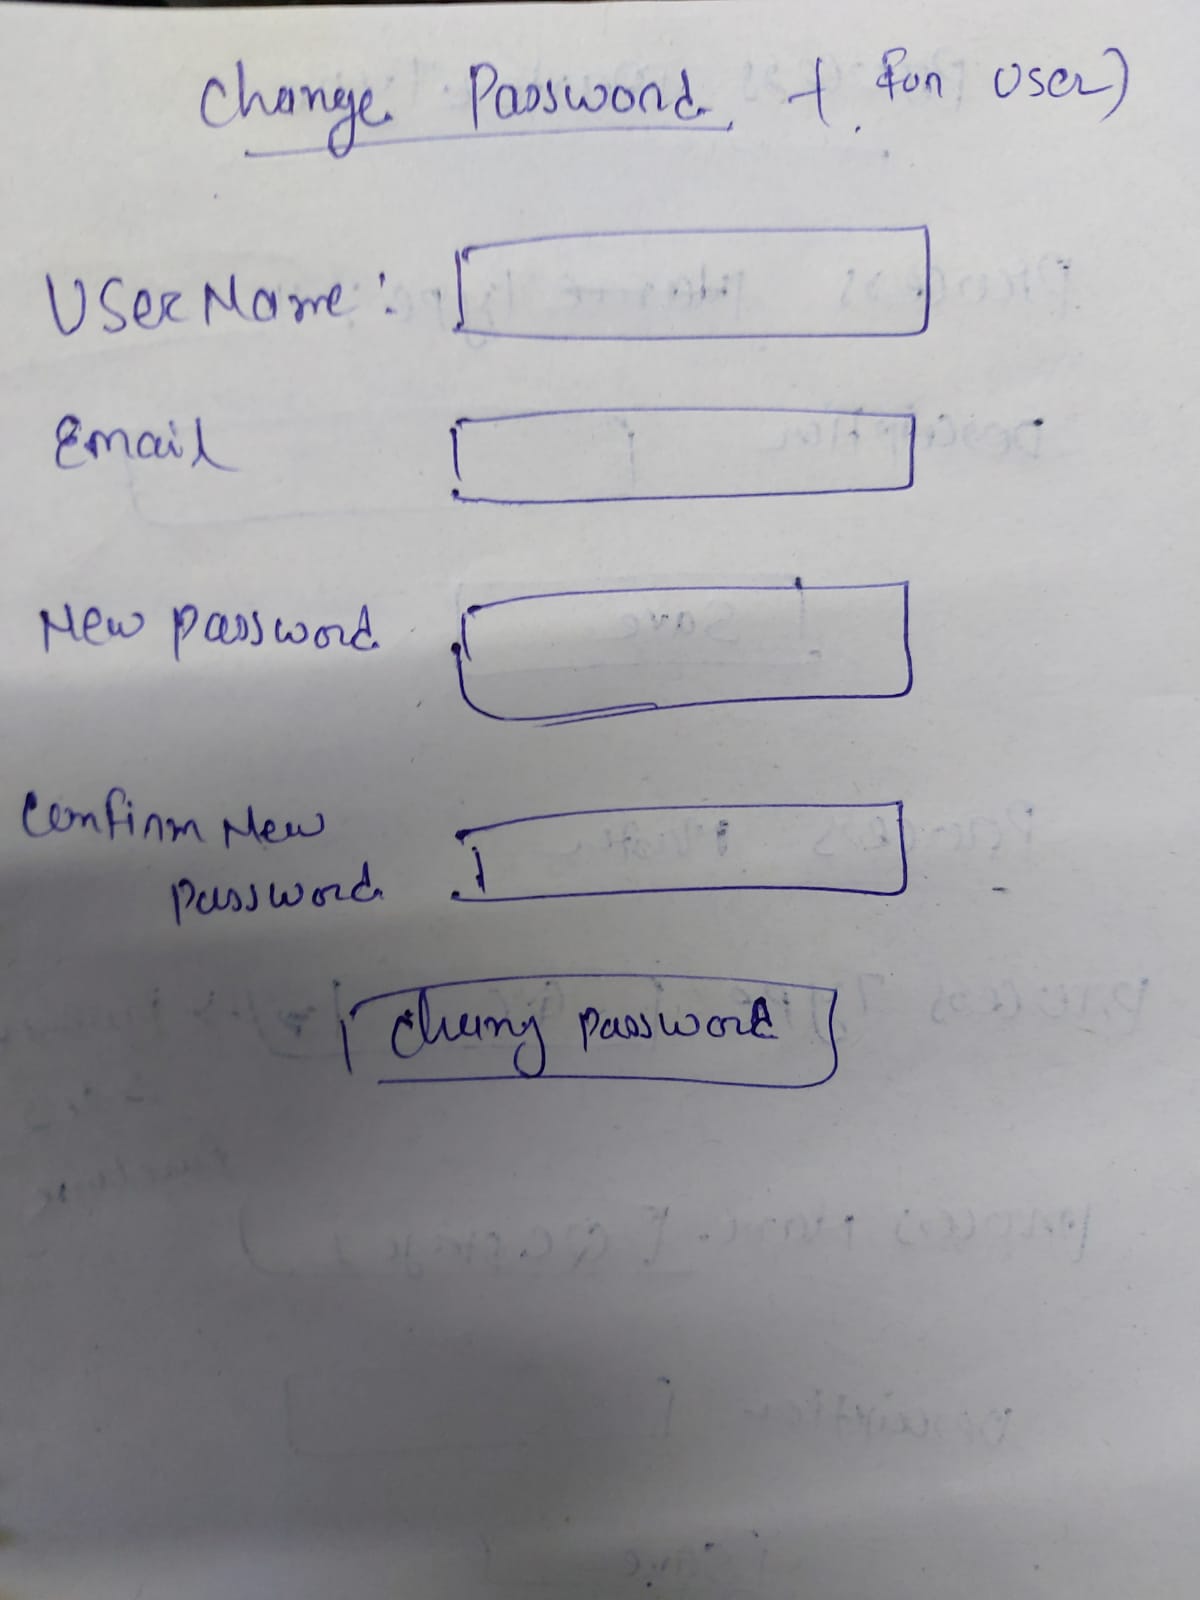 Change Password (For User)
UserName:
Email
New Password
Confirm New
Password
Chang Password